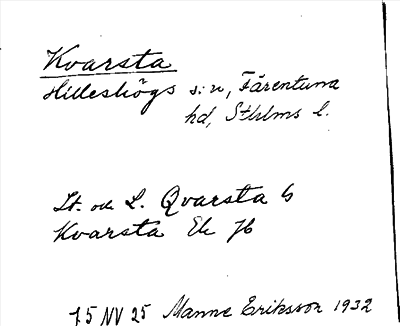 Kvarsta
Hilleshögs s:n, Färentuna
hd, Sthlms l.
St. och L. Qvarsta b
Kvarsta Ek Jb
75 NV 25 Manne Eriksson 1932